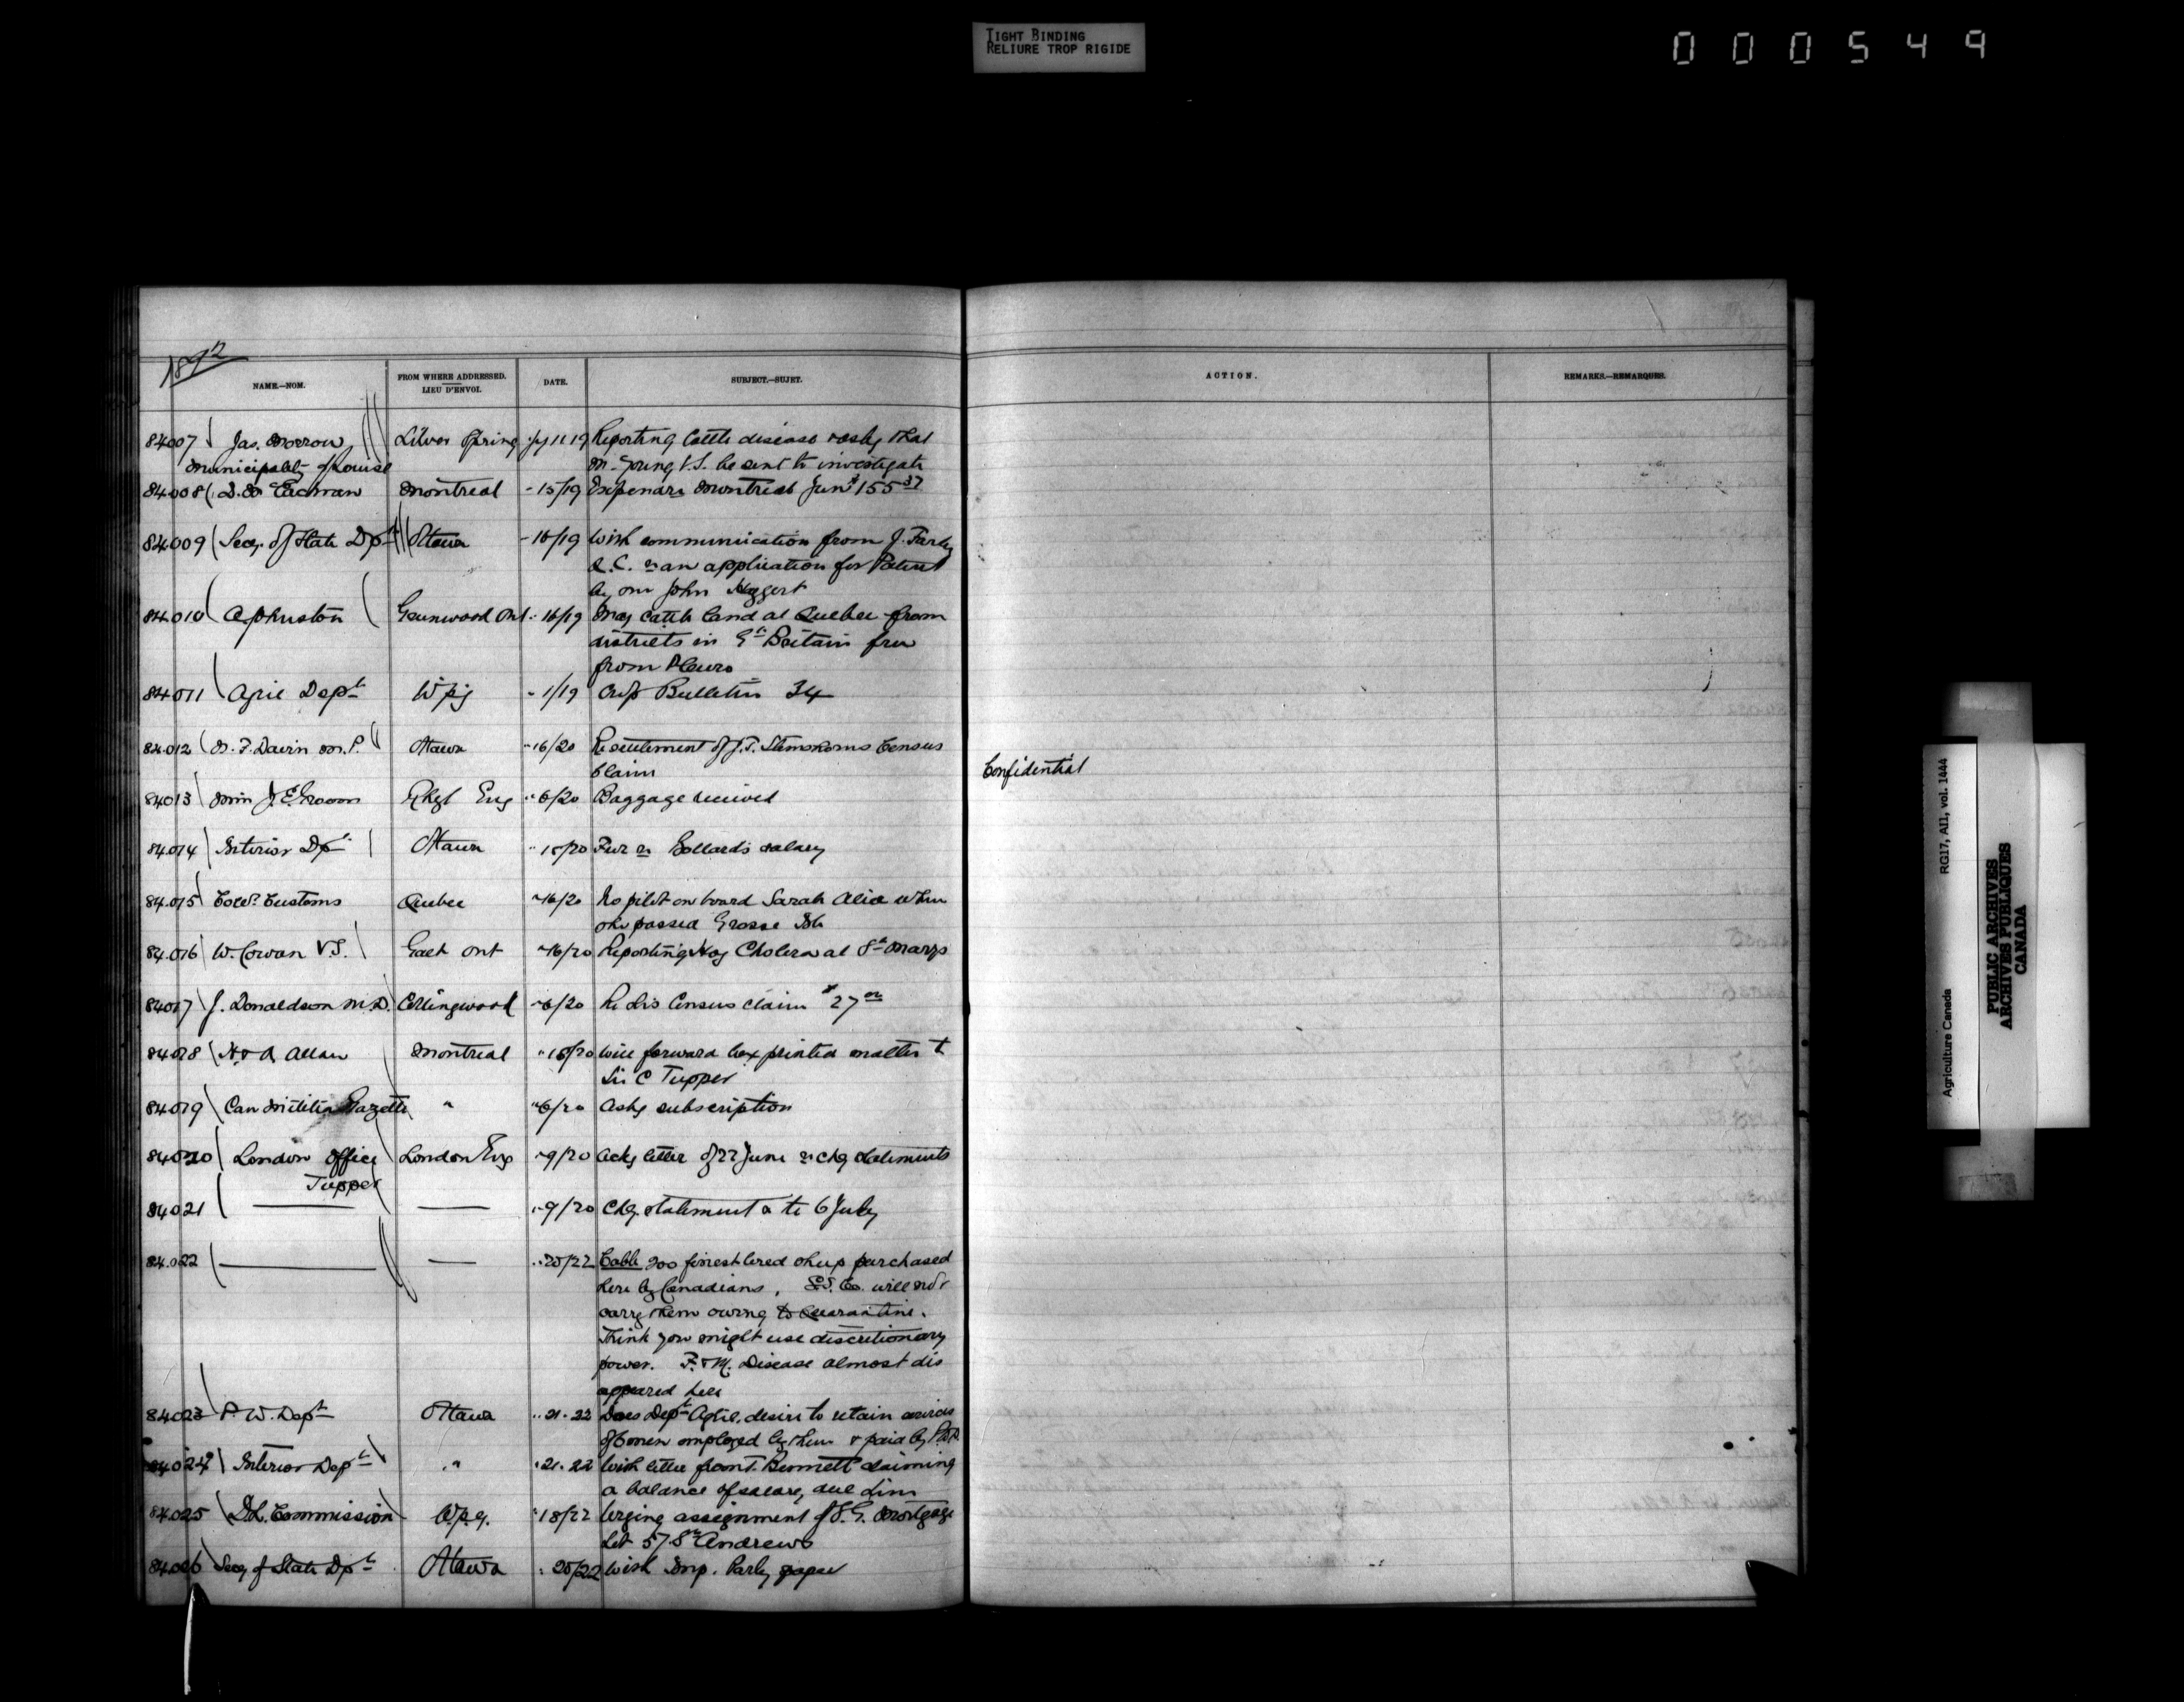 TIGHT BINDING
RELIURE TROP RIGIDE
000549
1892
NAME.—NOM.
FROM WHERE ADDRESSED.
LIEU D'ENVOI.
DATE.
SUBJECT.—SUJET.
ACTION.
REMARKS.—REMARQUES.
84007 Jas. Morrow Silver Spring Jy 11 19 Reporting Cattle disease & asks that
Municipality of Louise M. Young V.S. be sent to investigate
84008 D. McEachran Montreal " 15/19 Expendre Montreal June $155.37
84009 Secy. of State Dpt Ottawa " 16/19 With communication from J. Farley
Q.C. re an application for Patent
by one John Heggert
84010 A Johnston Greenwood Ont " 16/19 May Cattle land at Quebec from
districts in Gt Britain free
from Pleuro
84011 Agric Dept Wpg " 1/19 Crop Bulletin 34
84012 N. F. Davin M.P. Ottawa " 16/20 Re settlement of J.T. Census
Claim
Confidential
84013 J. E. Groom Eng " 6/20 Baggage received
84014 Interior Dpt Ottawa " 15/20 Fur re salary
84015 Coll. Customs Quebec " 16/20 No pilot on board Sarah Alice when
she passed Grosse Isle
84016 W. Cowan V.S. Galt Ont " 16/20 Reporting Hog Cholera at St Marys
84017 J. Donaldson M.D. Collingwood " 6/20 Re his Census claim $27.00
84018 H & A Allan Montreal " 18/20 Will forward box printed matter to
Sir C Tupper
84019 Can Militia Gazette " " 6/20 Asks subscription
84020 London Office London Eng " 9/20 Acks letter of 22 June re chq statements
Tupper
84021 —— —— " 9/20 Chq. statement a to 6 July
84022 —— —— " 20/22 Cable 200 finest bred sheep purchased
here by Canadians, S.S. Co. will not
carry them owing to Quarantine.
Think you might use discretionary
power. F. & M. Disease almost dis
appeared here
84023 P. W. Dept Ottawa " 21. 22 Does Dept Agric. desire to retain services
of employed by them & paid by P.W.D.
84024 Interior Dept " " 21. 22 With letter from T. Bennett claiming
a balance of salary due him
84025 D.L. Commission Wpg. " 18/22 Urging assignment of S.G. Mortgage
Lot 57 St Andrews
84026 Secy of State Dpt Ottawa " 20/22 With Imp. Parly paper
Agriculture Canada RG17, AI1, vol. 1444
PUBLIC ARCHIVES
ARCHIVES PUBLIQUES
CANADA